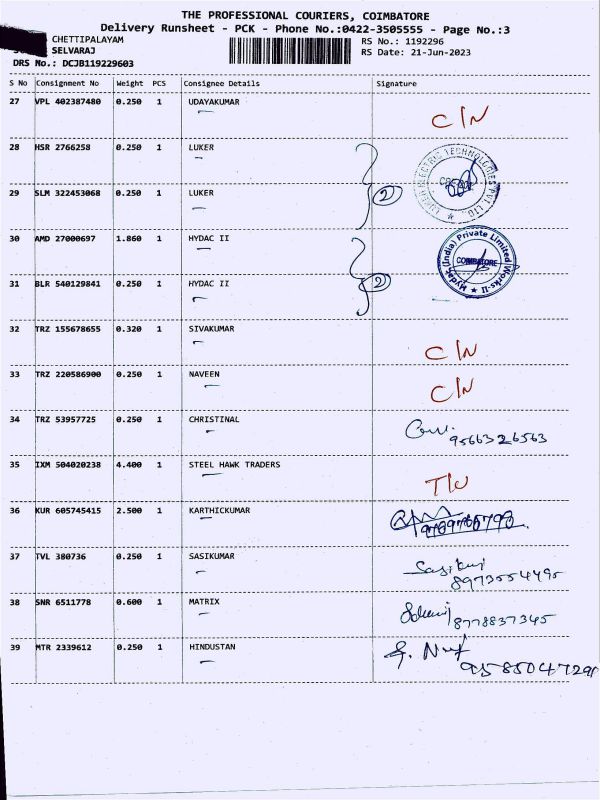 THE PROFESSIONAL COURIERS, COIMBATORE
Delivery Runsheet - PCK - Phone No.:0422-3505555 - Page No.:3
CHETTIPALAYAM RS No.: 1192296
SELVARAJ RS Date: 21-Jun-2023
DRS No.: DCJB119229603
S No Consignment No Weight PCS Consignee Details Signature
27 VPL 402387480 0.250 1 UDAYAKUMAR C/N
28 HSR 2766258 0.250 1 LUKER LUKER ELECTRIC TECHNOLOGIES PVT LTD.
29 SLM 322453068 0.250 1 LUKER 2
30 AMD 27000697 1.860 1 HYDAC II Hydac (India) Private Limited Works-II COIMBATORE
31 BLR 540129841 0.250 1 HYDAC II 2
32 TRZ 155678655 0.320 1 SIVAKUMAR C/N
33 TRZ 220586900 0.250 1 NAVEEN C/N
34 TRZ 53957725 0.250 1 CHRISTINAL 9566326563
35 IXM 504020238 4.400 1 STEEL HAWK TRADERS
36 KUR 605745415 2.500 1 KARTHICKUMAR
37 TVL 380736 0.250 1 SASIKUMAR 8973554495
38 SNR 6511778 0.600 1 MATRIX 8778837345
39 MTR 2339612 0.250 1 HINDUSTAN 9585047291